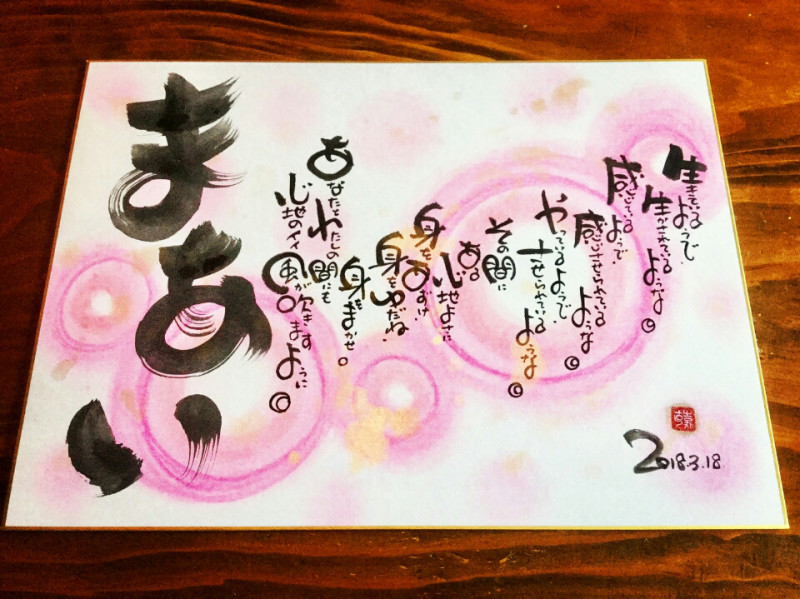 生きているようで
生かされているような◎
感じているようで
感じさせられているような◎
やっているようで、
させられているような◎
その間に
ある
心地よさに
身をあずけ
身をゆだね、
身をまかせ。
あなたとわたしの間にも
心地のイイ風が吹きますように◎
まあい
2018.3.18